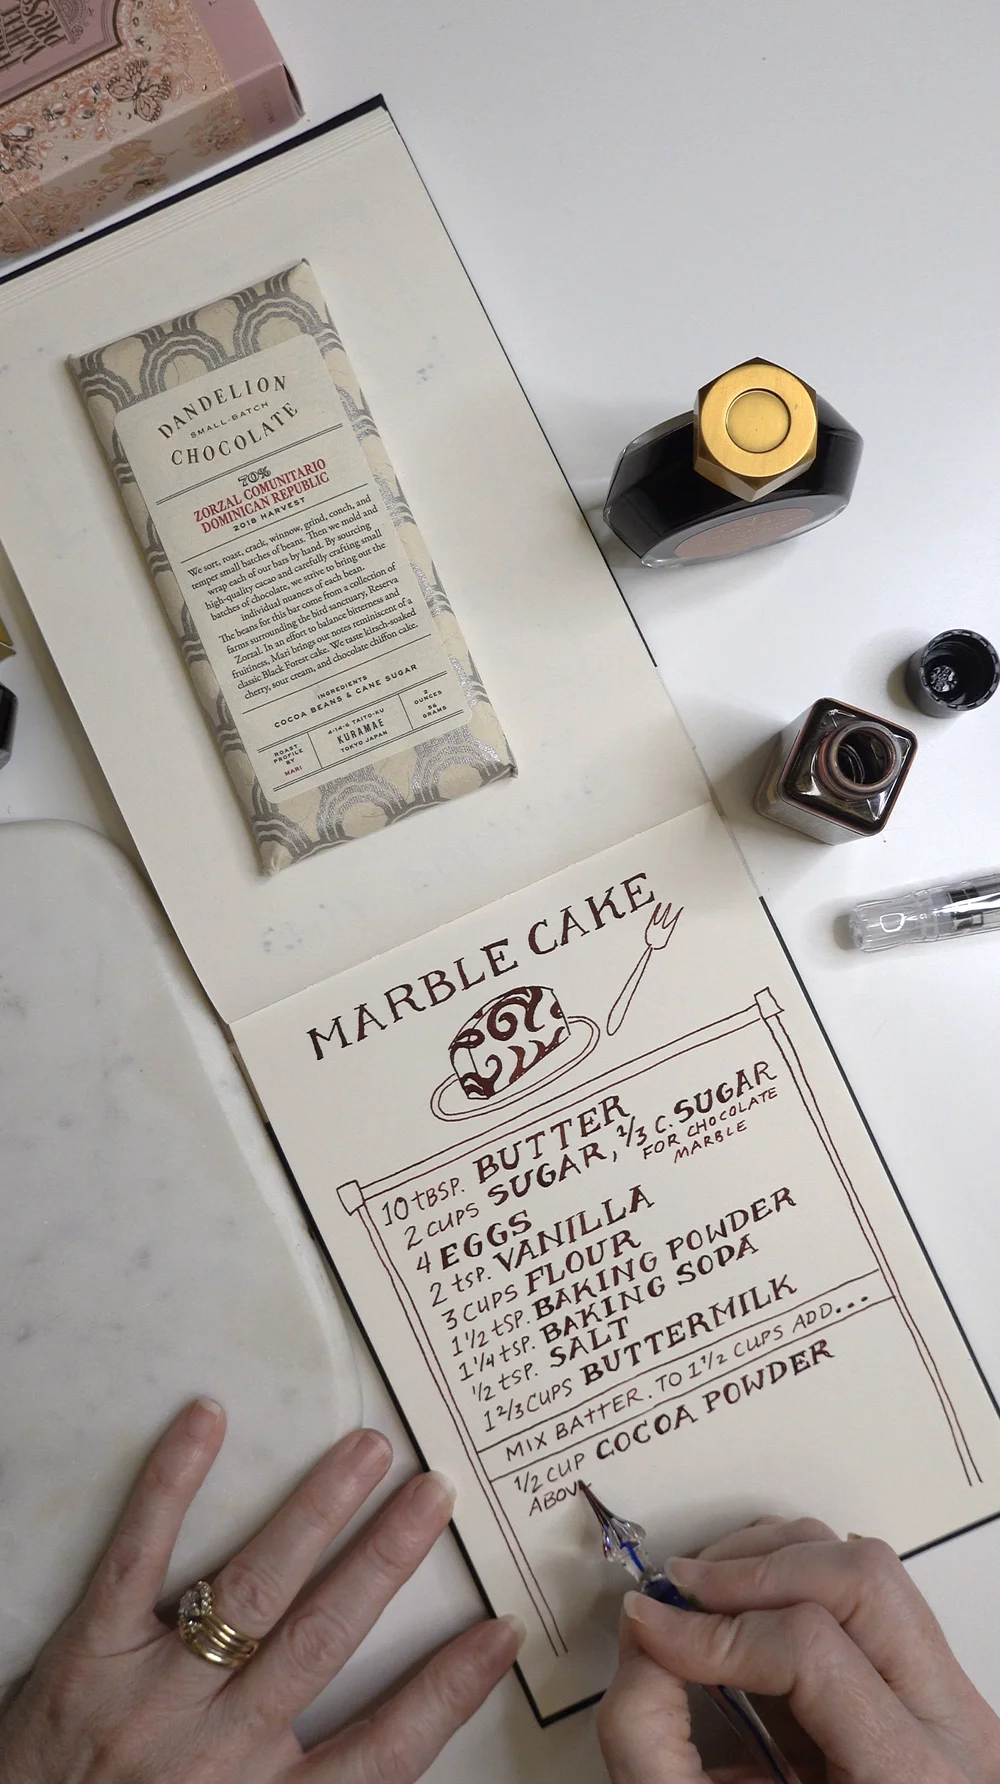 DANDELION
SMALL-BATCH
CHOCOLATE
70%
ZORZAL COMUNITARIO
DOMINICAN REPUBLIC
2018 HARVEST
We sort, roast, crack, winnow, grind, conch, and
temper small batches of beans. Then we mold and
wrap each of our bars by hand. By sourcing
high-quality cacao and carefully crafting small
batches of chocolate, we strive to bring out the
individual nuances of each bean.
The beans for this bar come from a collection of
farms surrounding the bird sanctuary, Reserva
Zorzal. In an effort to balance bitterness and
fruitiness, Mari brings out notes reminiscent of a
classic Black Forest cake. We taste kirsch-soaked
cherry, sour cream, and chocolate chiffon cake.
INGREDIENTS
COCOA BEANS & CANE SUGAR
ROAST
PROFILE
BY
MARI
4-14-6 TAITO-KU
KURAMAE
TOKYO JAPAN
2
OUNCES
56
GRAMS
MARBLE CAKE
10 tBSP. BUTTER
2 CUPS SUGAR, 1/3 C. SUGAR
FOR CHOCOLATE
MARBLE
4 EGGS
2 tSP. VANILLA
3 CUPS FLOUR
1 1/2 tSP. BAKING POWDER
1 1/4 tSP. BAKING SODA
1/2 tSP. SALT
1 2/3 CUPS BUTTERMILK
MIX BATTER. TO 1 1/2 CUPS ADD...
1/2 CUP COCOA POWDER
ABOV